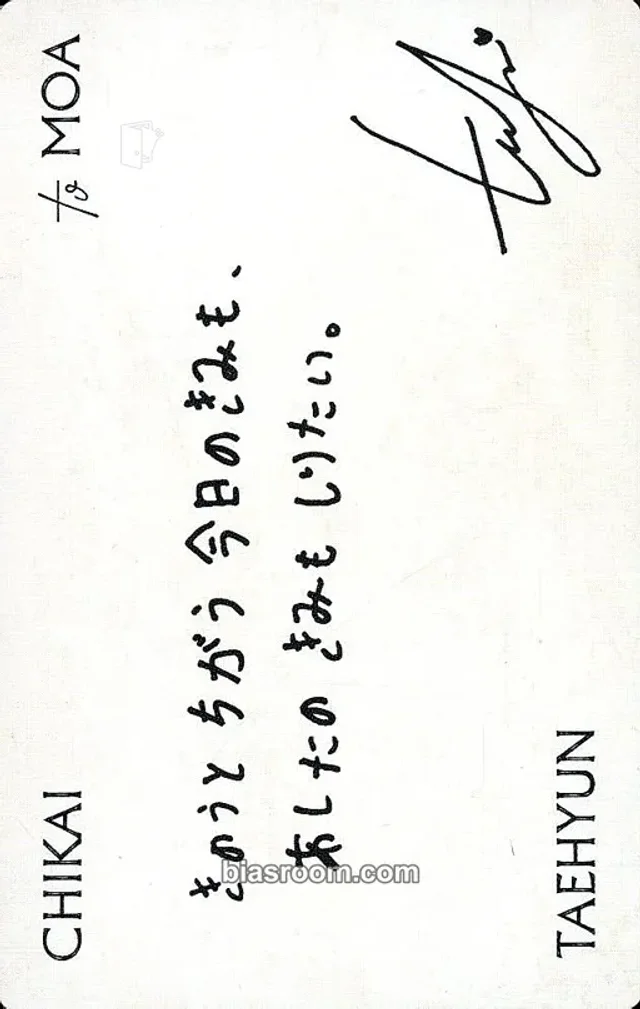 CHIKAI
to MOA
きのうと ちがう 今日の きみも、
あしたの きみも しりたい。
TAEHYUN
biasroom.com